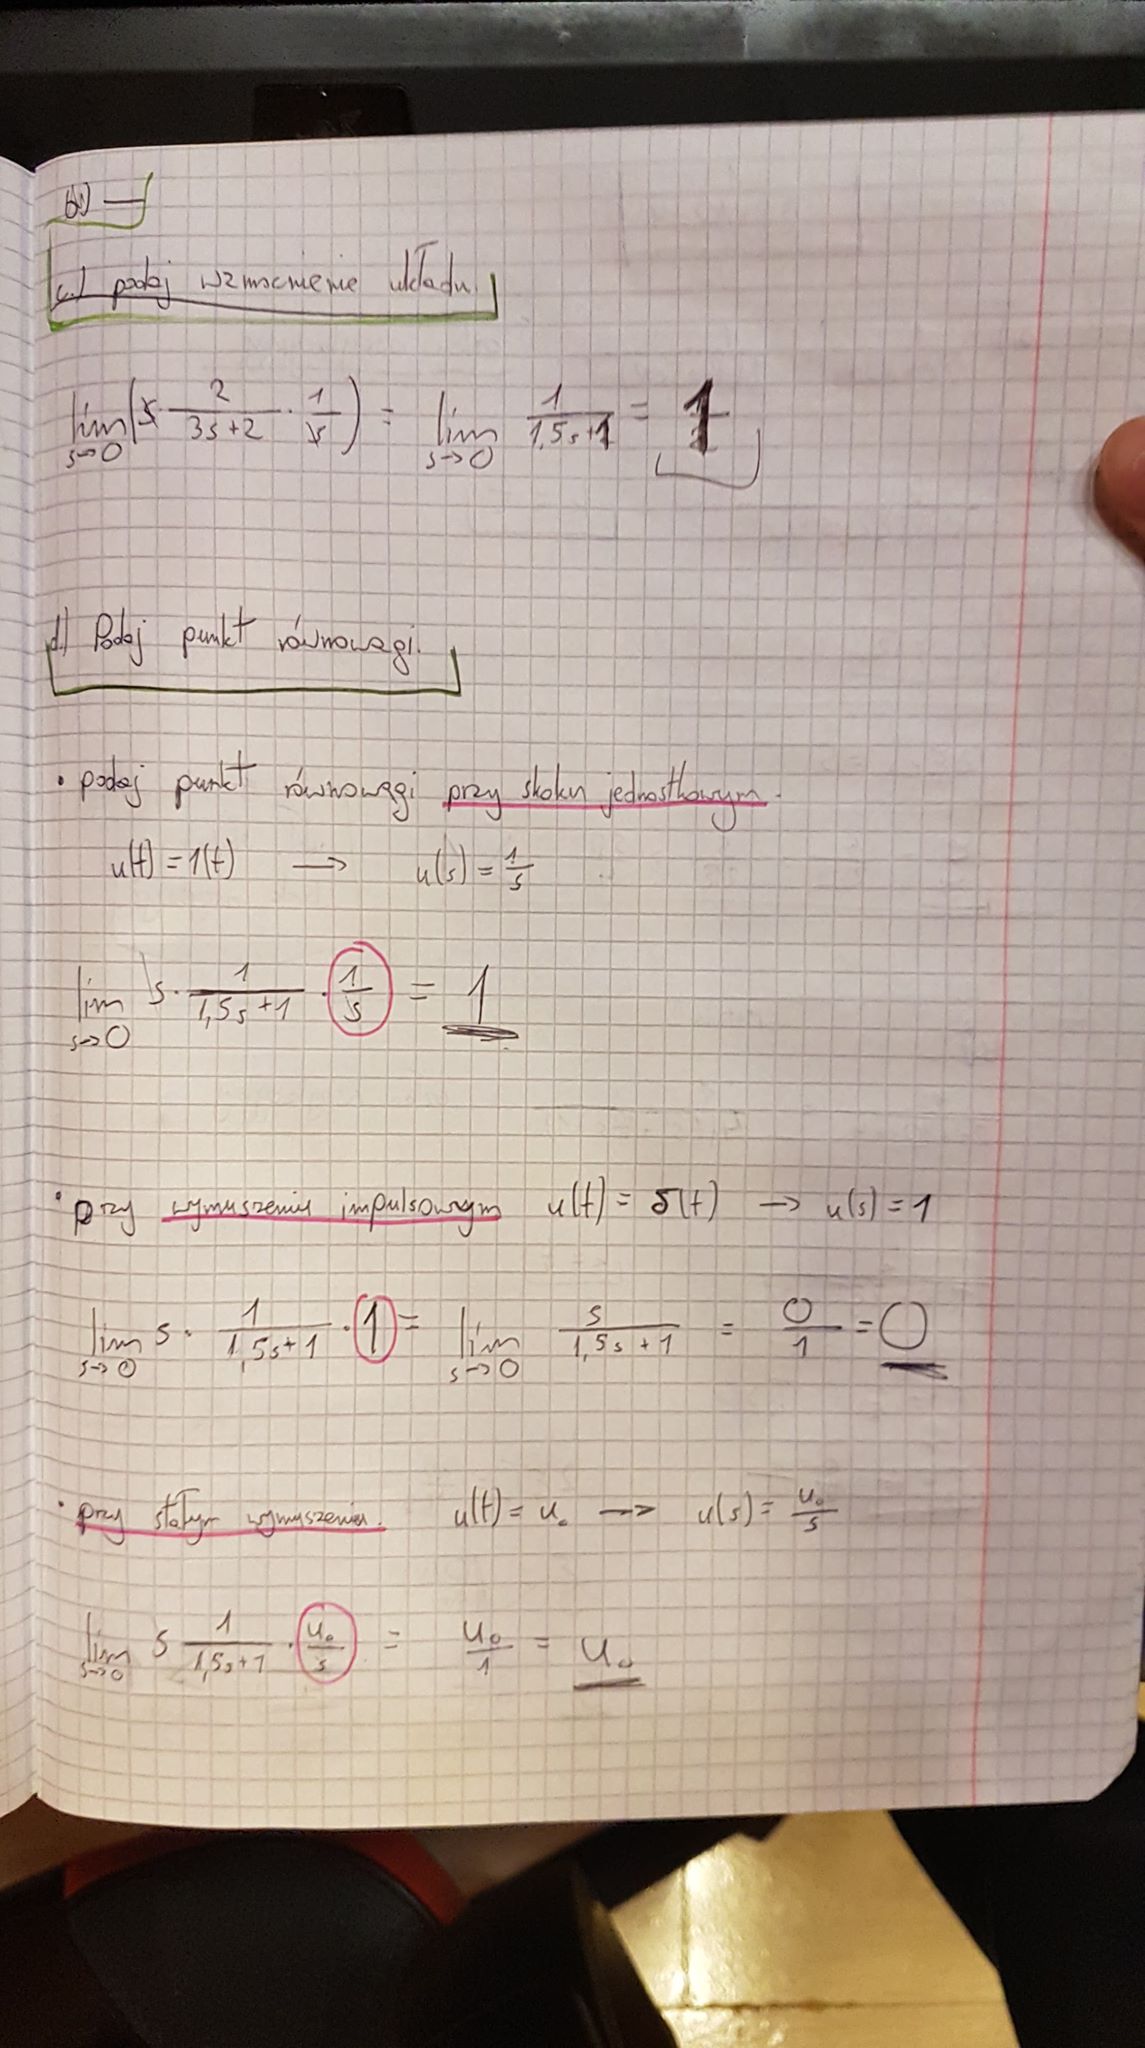 c.) podaj wzmocnienie układu.
lim s→0 (s · 2/(3s+2) · 1/s) = lim s→0 1/(1,5s+1) = 1
d.) Podaj punkt równowagi.
• podaj punkt równowagi przy skoku jednostkowym.
u(t) = 1(t) → u(s) = 1/s
lim s→0 s · 1/(1,5s+1) · 1/s = 1
• przy wymuszeniu impulsowym u(t) = δ(t) → u(s) = 1
lim s→0 s · 1/(1,5s+1) · 1 = lim s→0 s/(1,5s+1) = 0/1 = 0
• przy stałym wymuszeniu. u(t) = u₀ → u(s) = u₀/s
lim s→0 s 1/(1,5s+1) · u₀/s = u₀/1 = u₀